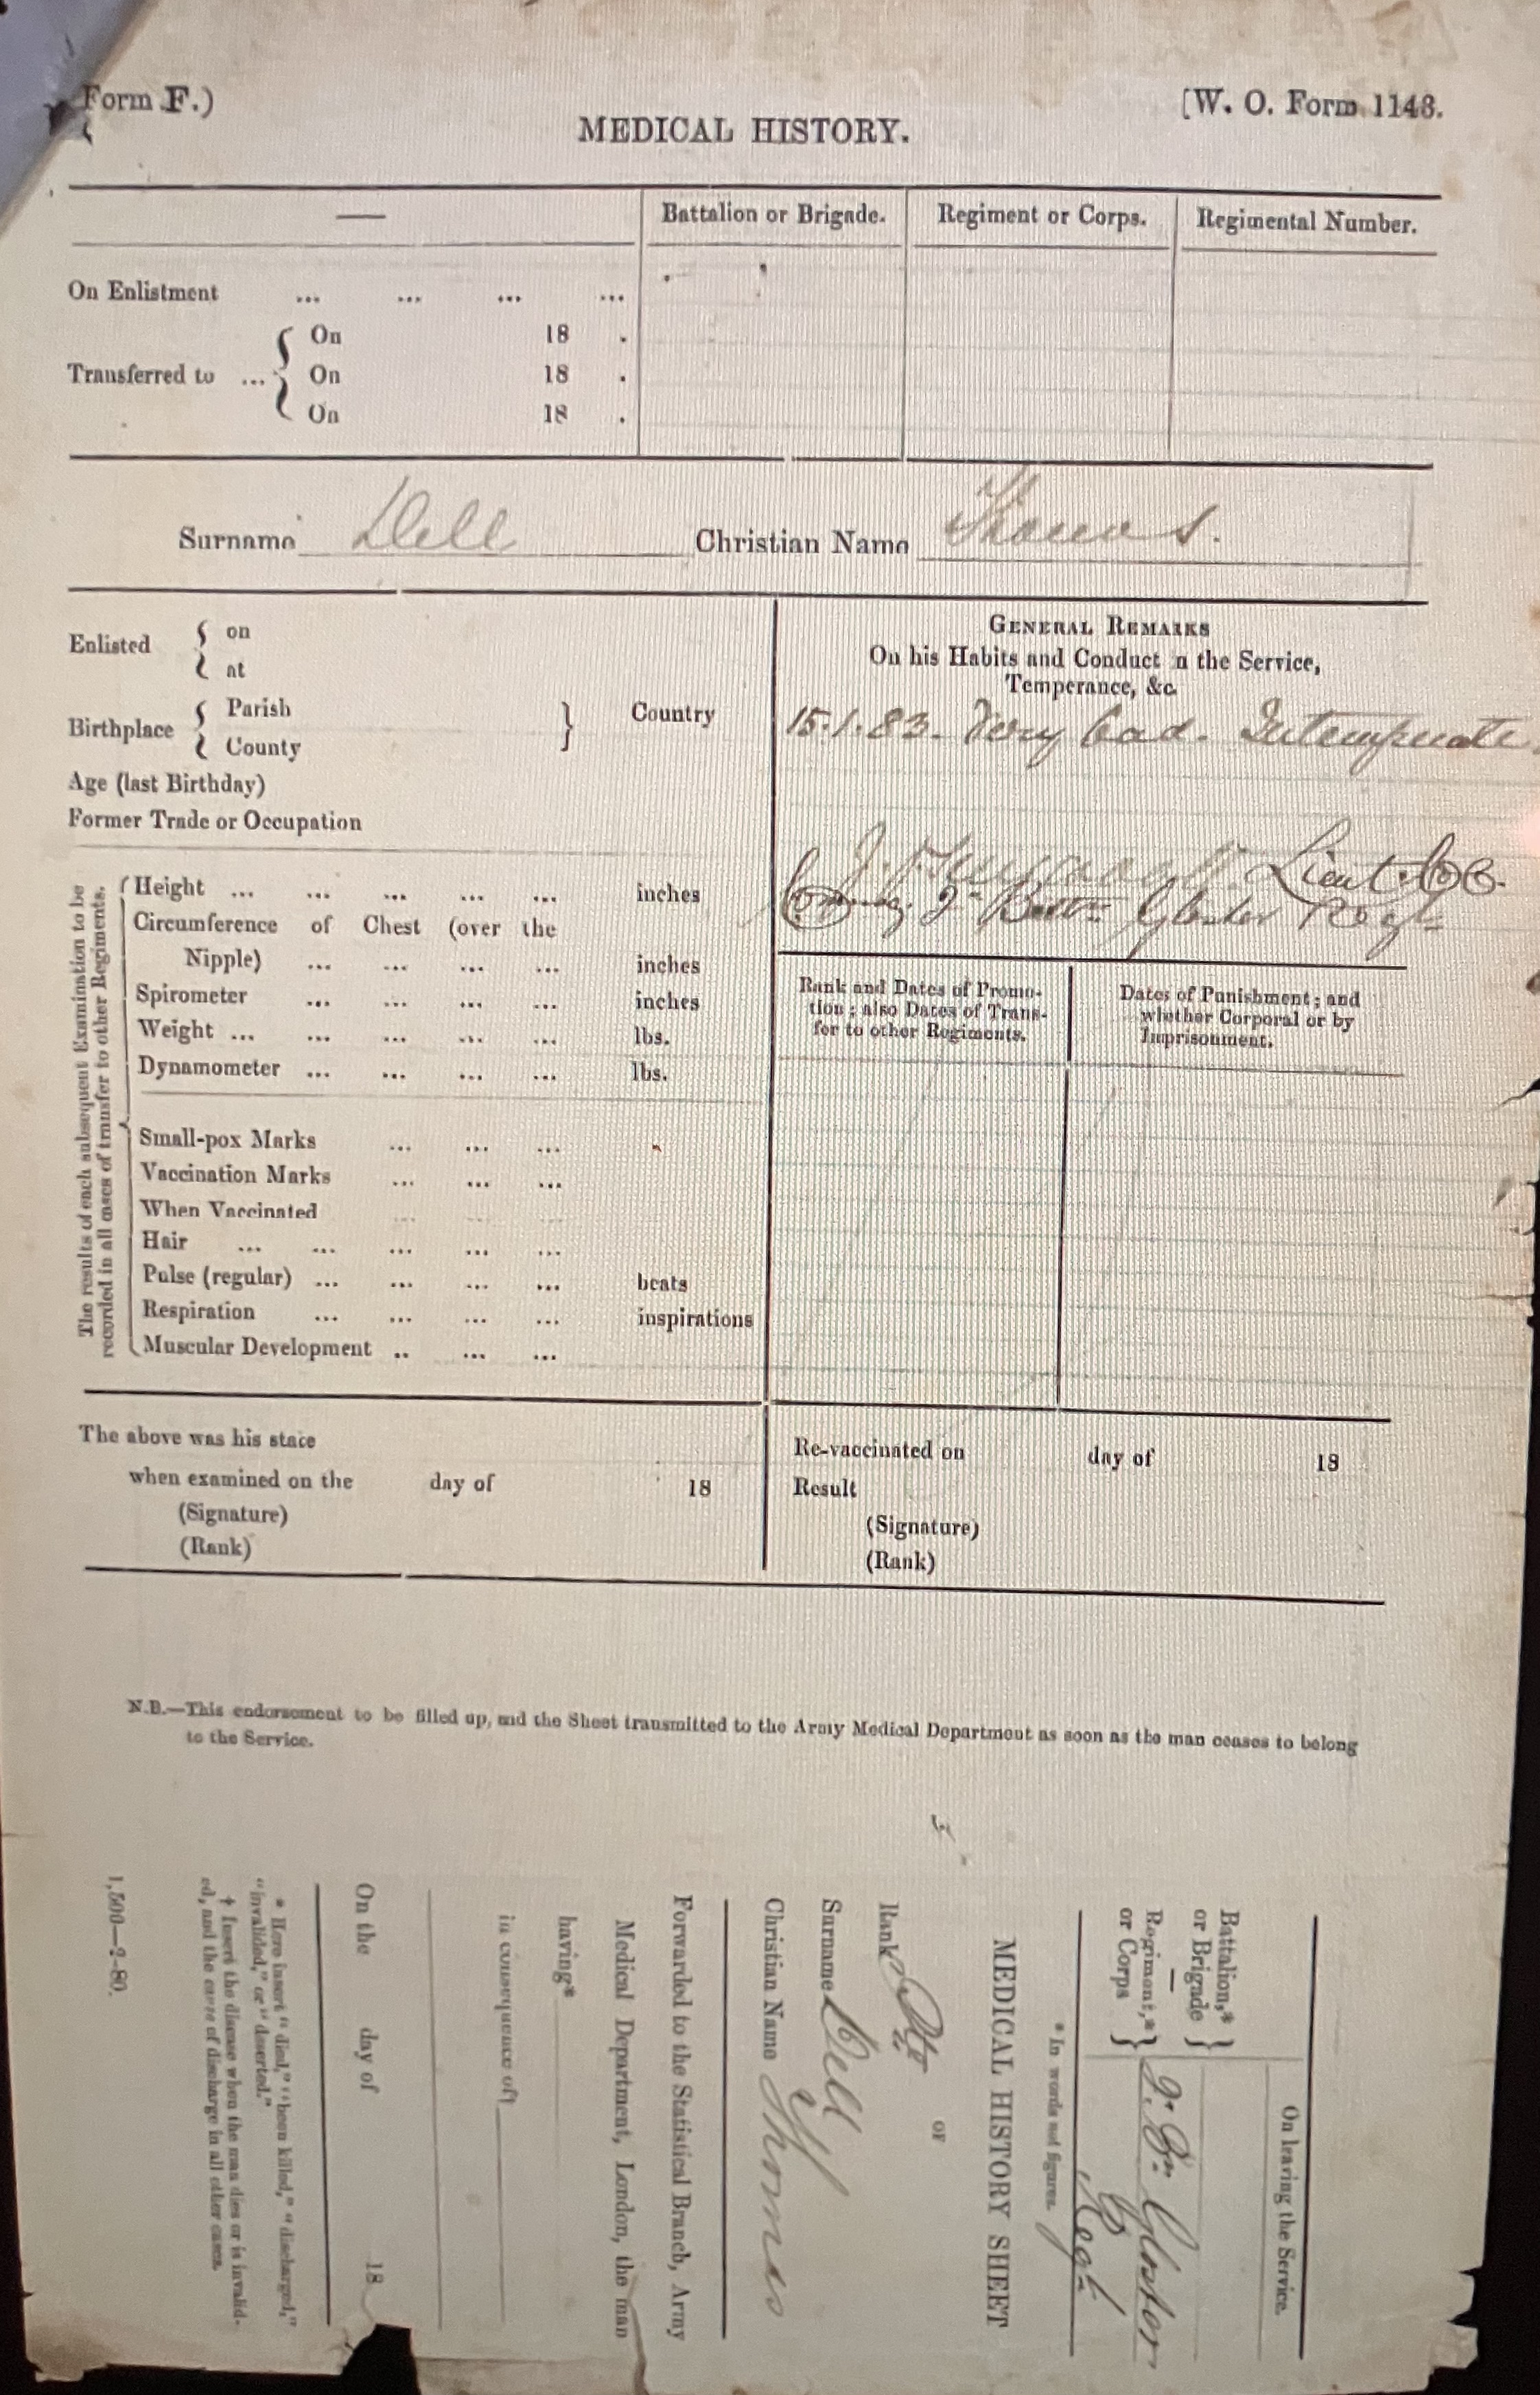 Form F.)
[W. O. Form 1143.
MEDICAL HISTORY.
— Battalion or Brigade. Regiment or Corps. Regimental Number.
On Enlistment ... ... ... ...
Transferred to ... { On 18 .
On 18 .
On 18 .
Surname Dell Christian Name Thomas.
Enlisted { on
at
Birthplace { Parish
County } Country
Age (last Birthday)
Former Trade or Occupation
GENERAL REMARKS
On his Habits and Conduct n the Service,
Temperance, &c
15.1.83. Very bad. Intemperate
Lieut. Col.
Commdg. 2d Battn Gloster Regt
The results of each subsequent Examination to be
recorded in all cases of transfer to other Regiments.
Height ... ... ... ... ... inches
Circumference of Chest (over the
Nipple) ... ... ... ... inches
Spirometer ... ... ... ... inches
Weight ... ... ... ... ... lbs.
Dynamometer ... ... ... ... lbs.
Small-pox Marks ... ... ...
Vaccination Marks ... ... ...
When Vaccinated ... ... ...
Hair ... ... ... ... ...
Pulse (regular) ... ... ... ... beats
Respiration ... ... ... ... inspirations
Muscular Development .. ... ...
Rank and Dates of Promo-
tion; also Dates of Trans-
fer to other Regiments.
Dates of Punishment; and
whether Corporal or by
Imprisonment.
The above was his state
when examined on the day of 18
(Signature)
(Rank)
Re-vaccinated on day of 18
Result
(Signature)
(Rank)
N.B.—This endorsement to be filled up, and the Sheet transmitted to the Army Medical Department as soon as the man ceases to belong
to the Service.
On leaving the Service.
Battalion,*
or Brigade }
—
Regiment,*
or Corps } 2d Bn Gloster
Regt
* In words not figures.
MEDICAL HISTORY SHEET
OF
Rank Pte
Surname Dell
Christian Name Thomas
Forwarded to the Statistical Branch, Army
Medical Department, London, the man
having*
in consequence of†
On the day of 18
* Here insert "died," "been killed," "discharged,"
"invalided," or "deserted."
† Insert the disease when the man dies or is invalid-
ed, and the cause of discharge in all other cases.
1,500—2-80.